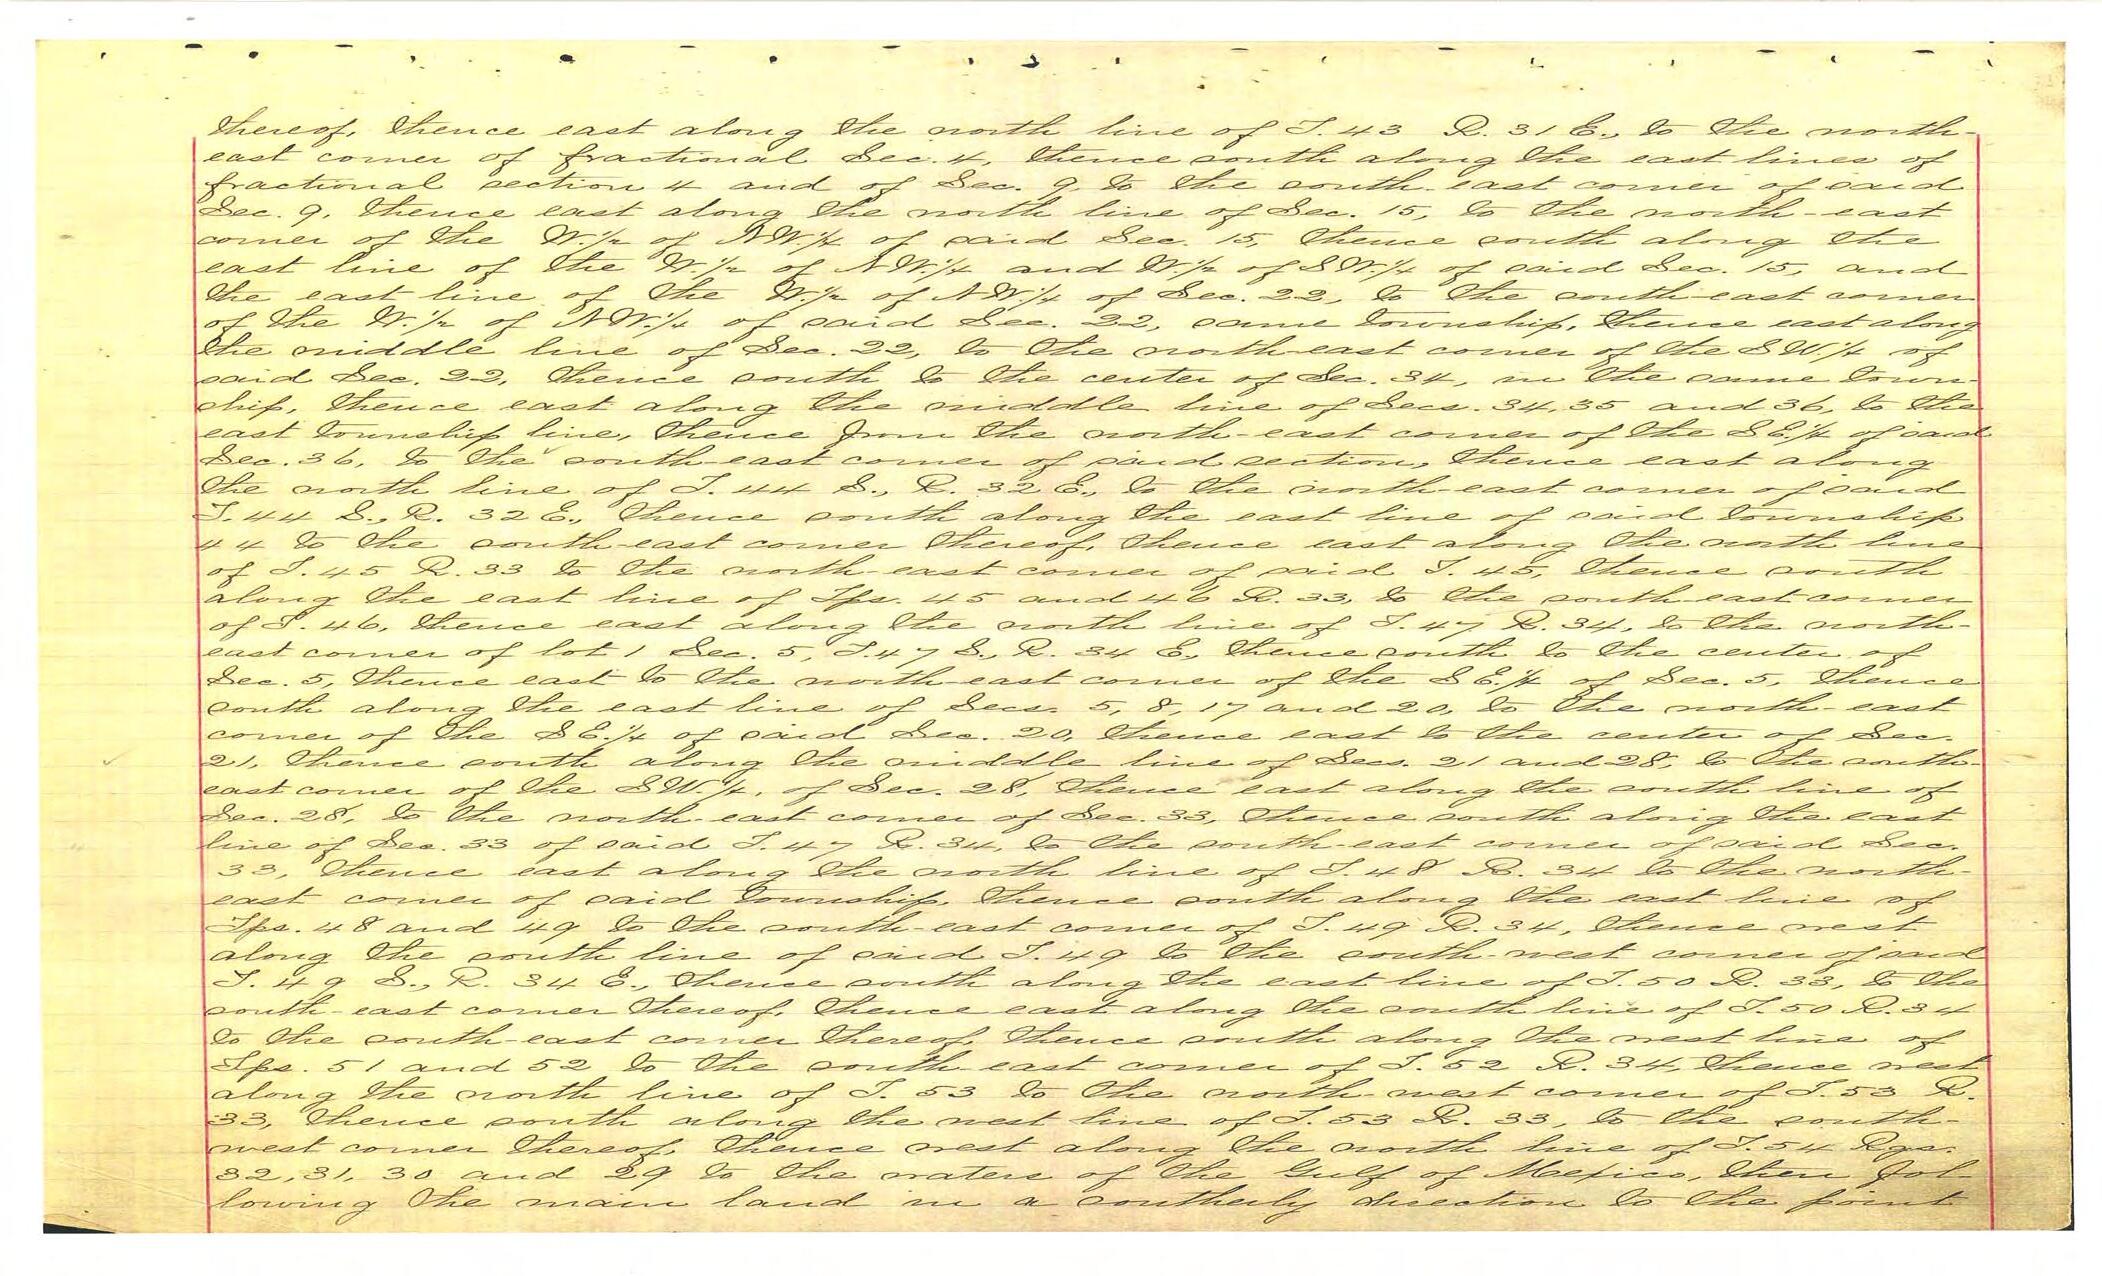 thereof, thence east along the north line of T. 43 R. 31 E., to the north-
east corner of fractional Sec. 4, thence south along the east lines of
fractional section 4 and of Sec. 9, to the south-east corner of said
Sec. 9, thence east along the north line of Sec. 15, to the north-east
corner of the W.1/2 of NW.1/4 of said Sec. 15, thence south along the
east line of the W.1/2 of NW.1/4 and W.1/2 of SW.1/4 of said Sec. 15, and
the east line of the W.1/2 of NW.1/4 of Sec. 22, to the south-east corner
of the W.1/2 of NW.1/4 of said Sec. 22, same township, thence east along
the middle line of Sec. 22, to the north-east corner of the SW.1/4 of
said Sec. 22, thence south to the center of Sec. 34, in the same town-
ship, thence east along the middle line of Secs. 34, 35 and 36, to the
east township line, thence from the north-east corner of the SE.1/4 of said
Sec. 36, to the south-east corner of said section, thence east along
the north line of T. 44 S., R. 32 E., to the north-east corner of said
T. 44 S., R. 32 E., thence south along the east line of said township
44 to the south-east corner thereof, thence east along the north line
of T. 45 R. 33 to the north-east corner of said T. 45, thence south
along the east line of Tps. 45 and 46 R. 33, to the south-east corner
of T. 46, thence east along the north line of T. 47 R. 34, to the north-
east corner of lot 1 Sec. 5, T. 47 S., R. 34 E., thence south to the center of
Sec. 5, thence east to the north-east corner of the SE.1/4 of Sec. 5, thence
south along the east line of Secs. 5, 8, 17 and 20, to the north-east
corner of the SE.1/4 of said Sec. 20, thence east to the center of Sec.
21, thence south along the middle line of Secs. 21 and 28, to the south-
east corner of the SW.1/4, of Sec. 28, thence east along the south line of
Sec. 28, to the north-east corner of Sec. 33, thence south along the east
line of Sec. 33 of said T. 47 R. 34, to the south-east corner of said Sec.
33, thence east along the north line of T. 48 R. 34 to the north-
east corner of said township, thence south along the east line of
Tps. 48 and 49 to the south-east corner of T. 49 R. 34, thence west
along the south line of said T. 49 to the south-west corner of said
T. 49 S., R. 34 E., thence south along the east line of T. 50 R. 33, to the
south-east corner thereof, thence east along the south line of T. 50 R. 34
to the south-east corner thereof, thence south along the west line of
Tps. 51 and 52 to the south east corner of T. 52 R. 34, thence west
along the north line of T. 53 to the north-west corner of T. 53 R.
33, thence south along the west line of T. 53 R. 33, to the south-
west corner thereof, thence west along the north line of T. 54 Rgs.
32, 31, 30 and 29 to the waters of the Gulf of Mexico, then fol-
lowing the main land in a southerly direction to the point